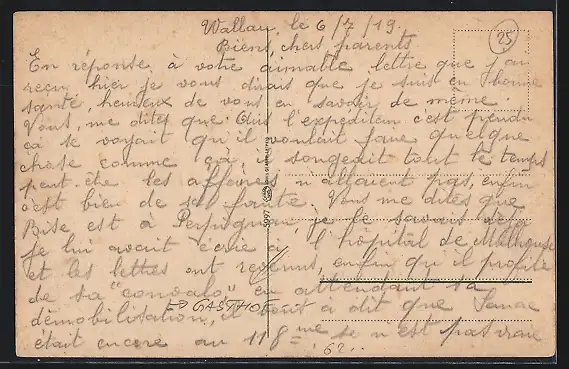 Wallau, le 6/7/19.
Biens chers parents
25
En réponse à votre aimable lettre que j'ai
reçu hier, je vous dirais que je suis en bonne
santé, heureux de vous en savoir de même.
Vous me dites que l'expediteur c'est pendu
ça se voyait qu'il voulait faire quelque
chose comme ça, il songeait tout le temps
peut-être les affaires n'allaient pas, enfin
c'est bien de sa faute. Vous me dites que
Bise est à Perpignan, je le savais déjà
je lui avait écrie à l'hôpital de Mulhouse
et les lettres ont revenus, enfin qu'il profite
de sa "convalo" en attendant sa
démobilisation, il à dit que
était encore au 118ème se n'est pas vraie
GASTHOF
62